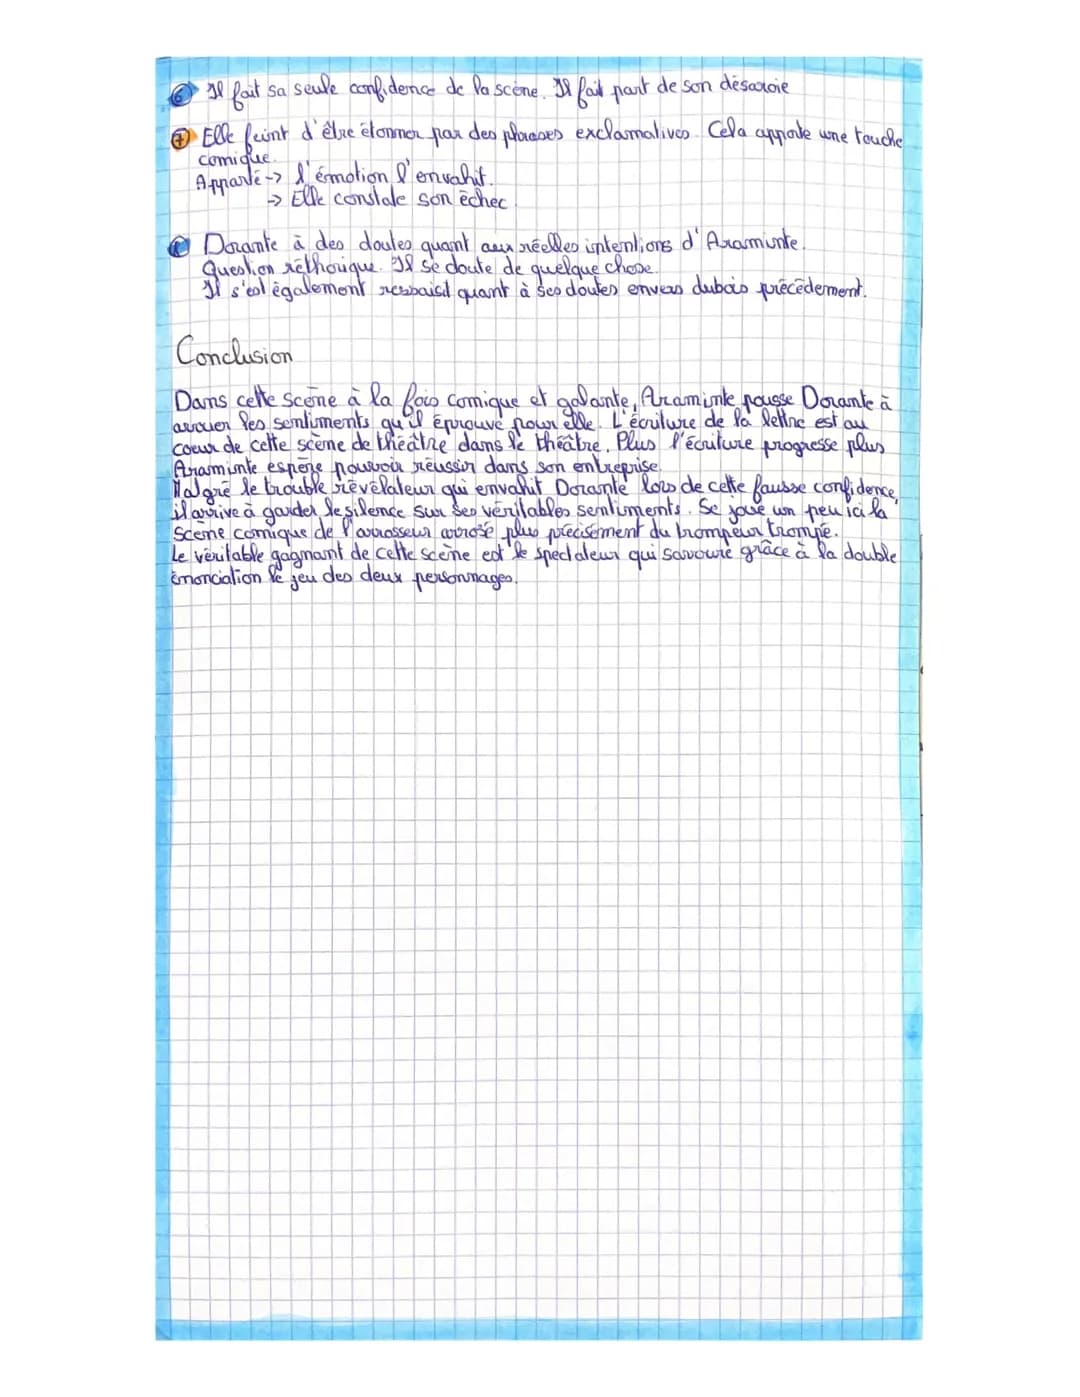 ⑥ Il fait sa seule confidence de la scène. Il fait part de son désaroie
⑦ Elle feint d'être étonner par des phrases exclamatives. Cela apporte une touche
comique.
Apparté -> l'émotion l'envahit.
-> Elle constate son échec.
Dorante à des doutes quant aux réelles intentions d'Araminte.
Question réthorique. Il se doute de quelque chose.
Il s'est également ressaisit quant à ses doutes envers dubois précédement.
Conclusion
Dans cette scène à la fois comique et galante, Araminte pousse Dorante à
avouer les sentiments qu'il éprouve pour elle. L'écriture de la lettre est au
coeur de cette scène de théâtre dans le théâtre. Plus l'écriture progresse plus
Araminte espère pouvoir réussir dans son entreprise.
Malgré le trouble révélateur qui envahit Dorante lors de cette fausse confidence,
il arrive à garder le silence sur ses véritables sentiments. Se joue un peu ici la
scène comique de l'arrosseur arrosé plus précisément du trompeur trompé.
Le véritable gagnant de cette scène est le spectateur qui savoure grâce à la double
énonciation le jeu des deux personnages.